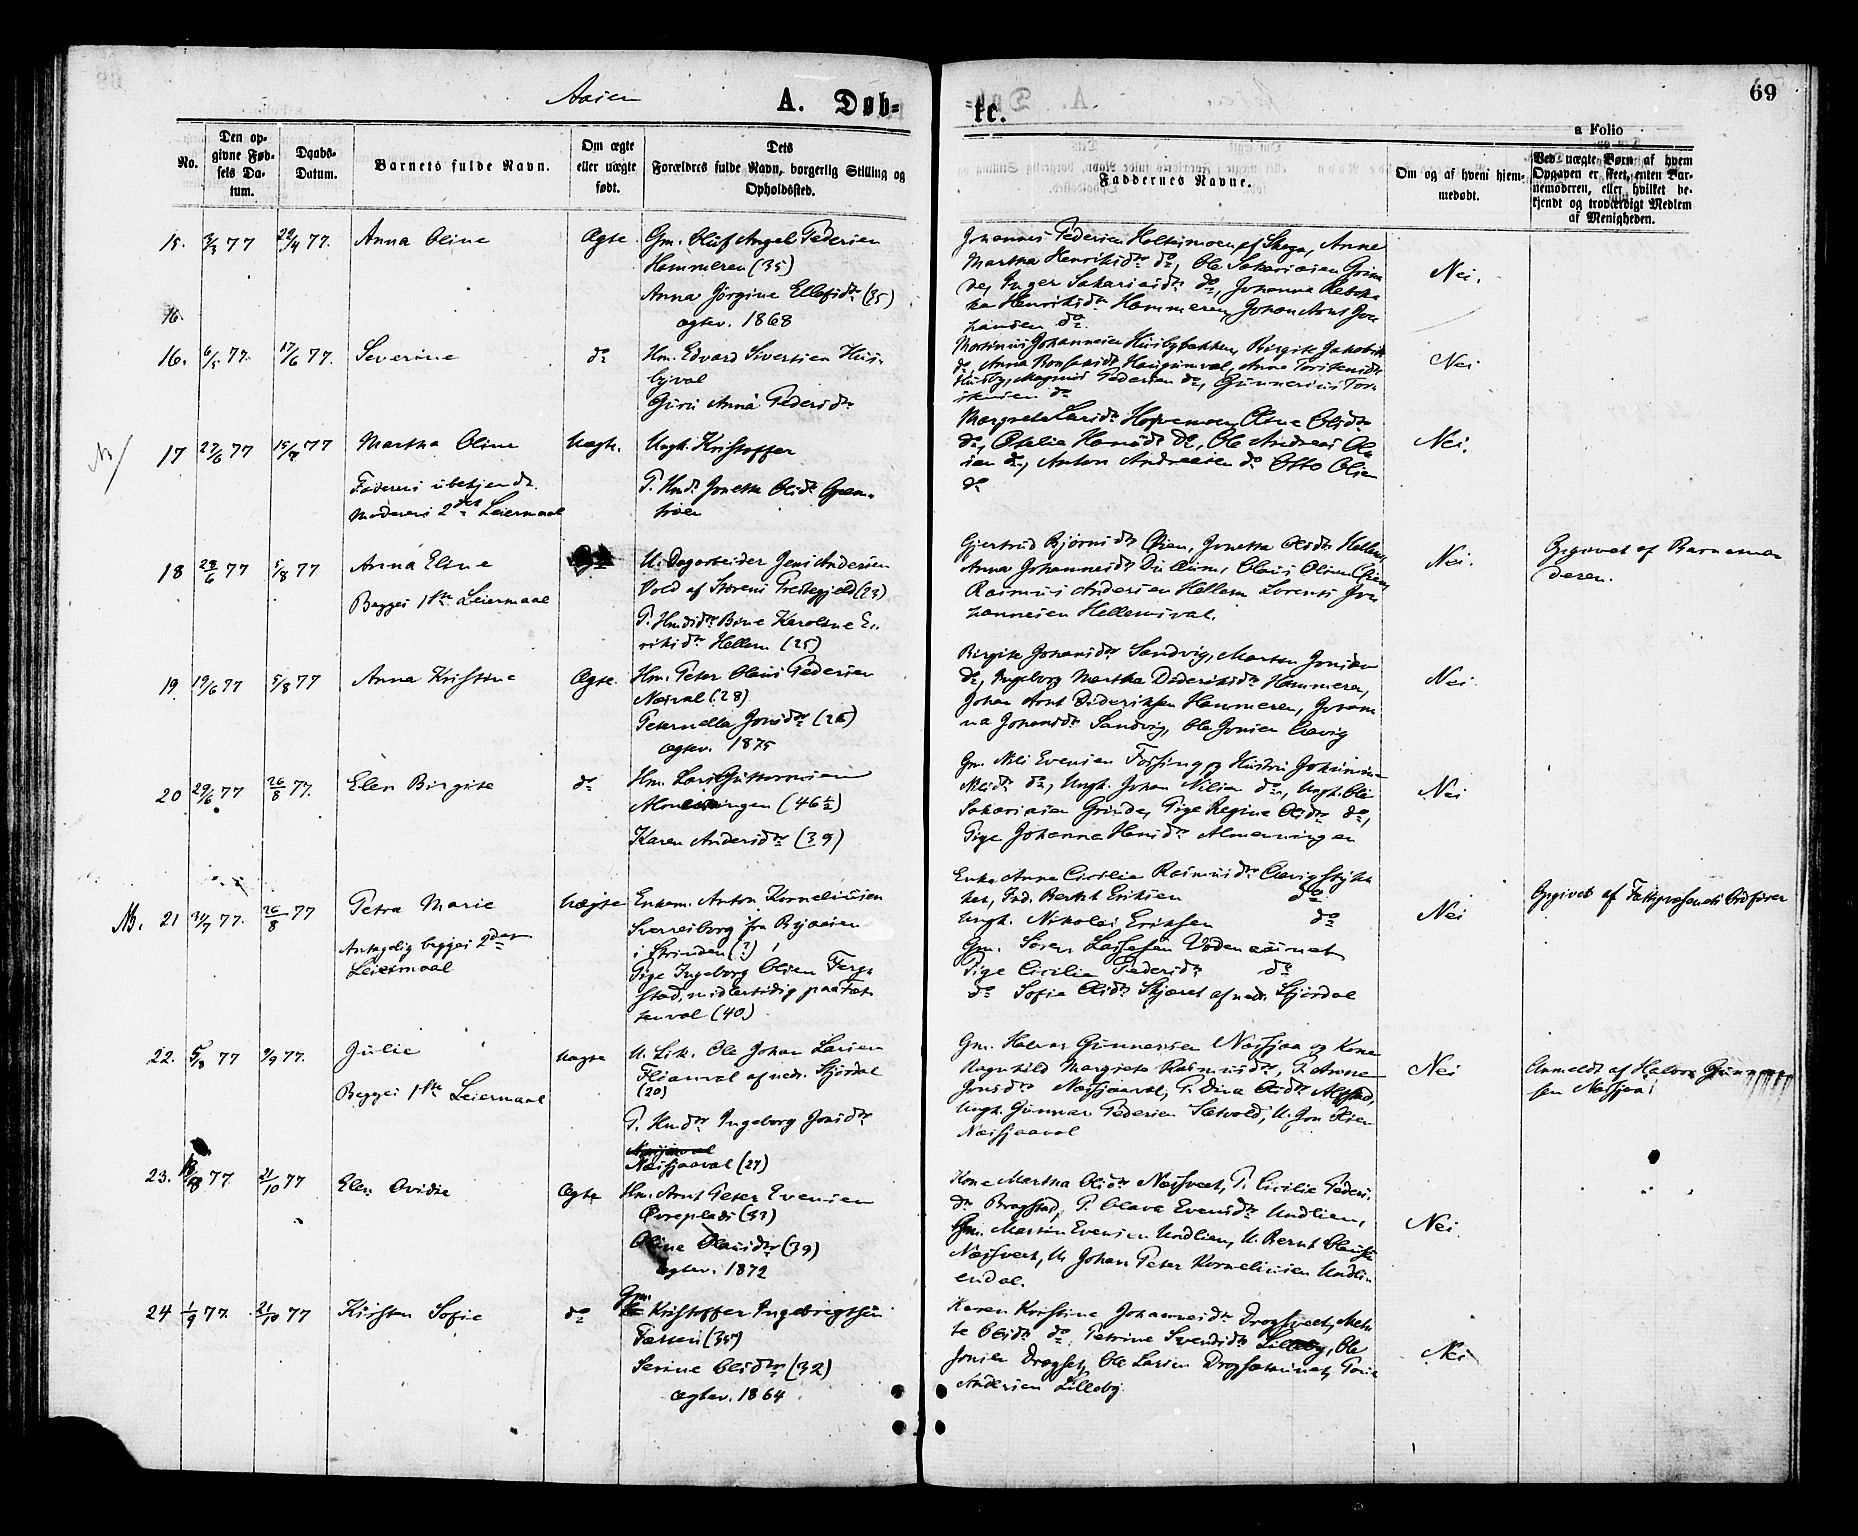 Aasen
A. Døb=
te.
69
a Folio
No.
Den op-
givne Fød-
sels Da-
tum.
Daabs-
Datum.
Barnets fulde Navn.
Om ægte
eller uægte
født.
Dets
Forældres fulde Navn, borgerlig Stilling og
Opholdssted.
Faddernes Navne.
Om og af hvem hjem-
medøbt.
Ved uægte Børn af hvem
Opgaven er skeet, enten Bar-
nemoderen, eller hvilket be-
kjendt og troværdigt Medlem
af Menigheden.
15. 77 22/4 77. Anna Oline Ægte. Gm. Oluf Angel Pedersen
Hammeren (35)
Anna Jørgine Ellefsdtr (35)
ægtev. 1868
Johannes Pedersen af Skogn, Anne
Martha Henriksdtr do, Ole Sakariasen Grin
de, Inger Sakariasdtr do, Johanna Rebek
ka Henriksdtr Hammeren, Johan Arnt Jo
hansen do
Nei.
16.
16. 6/5 77. 17/6 77. Severine do Hm. Edvard Sivertsen Hus-
byval
Guru Anna Pedersdtr
Martinus Johannesen Husbybakken, Birgite Jakobsdtr
do, Anna Haugumval, Anne Torstensdtr
Husby, Magnus Pedersen do, Gunnerius Tor-
stensen do
Nei
17 27/6 77 15/7 77 Martha Oline Uægte. Ungk. Kristoffer
Faderens ubekjendt.
Moderens 2det Leiermaal
P. Hmdtr Jonetta Olsdtr
Margrete Larsdtr Hopremoen, Oline Olsdtr
do, Otilie Hansdtr do, Ole Andreas Ol-
sen do, Anton Andreasen do Otto Olsen
do
Nei.
18 28/6 77 5/8 77 Anna Eline
Begges 1ste Leiermaal
U. Dagarbeider Jens Andersen
Vold af Størens Præstegjeld (23)
P. Hmdsdtr Bine Karoline E-
riksdtr Hellem (25)
Gjertrud Bjørnsdtr Øien, Jonetta Olsdtr Hellem,
Anna Johannesdtr Olaus Olsen Øien,
Rasmus Andersen Hellem Lorents Jo-
hannesen Hellemsval.
Nei.
Opgivet af Barnemo-
deren.
19. 19/6 77 5/8 77 Anna Kristine Ægte. Hm. Peter Olaus Pedersen
Næsval (28)
Peternella Jonsdtr (26)
ægtev. 1875
Birgite Johansdtr Sandvig, Morten Jonsen
do, Ingeborg Martha Dideriksdtr Hammeren,
Johan Arnt Dideriksen Hammeren, Johan-
na Johansdtr Sandvig, Ole Jonsen Løvig
Nei.
20 29/6 77 26/8 77. Elen Birgite do Hm. Lars Guttormsen
Almenningen (46 1/2)
Karen Andersdtr (39)
Gm. Nils Evensen Fossing og Hustru Johanna
Nilsdtr do, Ungk. Johan Nilsen do, Ungk. Ole
Sakariasen Grinde, Pige Regine Olsdtr do,
Pige Johanna Hansdtr Almenningen
Nei
NB. 21 31/7 77. 26/8 77 Petra Marie
Antagelig begges 2det
Leiermaal
Uægte Enkem. Anton Korneliussen
Sverresborg fra Byaasen
i Strinden (?)
Pige Ingeborg Olsen Ferg-
stad, midlertidig paa Fæt-
tenval (40)
Enke Anna Cicilia Rasmusdtr
Ind. Bernt Eriksen do
Ungk. Nikolai Eriksen do
Gm. Søren Lassesen Vordenaunet
Pige Cicilia Pedersdtr do
do Sofie Olsdtr Skjæret af nedr. Stjørdal
Nei
Opgivet af Fattigvæsenets Ordfører
22. 5/8 77 9/9 77. Julie
Begges 1ste Leiermaal
Uægte U. Lsk. Ole Johan Larsen
Floanval af nedr. Stjørdal
(20)
P. Hmdtr Ingeborg Jonsdtr
Næssjaaval (27)
Gm. Halvor Gunnersen Næssjaa og Kone
Ragnhild Margrete Rasmusdtr, P. Anne
Jonsdtr Næssjaaval, P. Dina Olsdtr
Ungk. Gunnar Pedersen Sætvold, U. Jon Olsen
Næssjaaval
Nei
Anmeldt af Halvor Gunner-
sen Næssjaa.
23. 18/8 77 21/10 77 Elen Ovidie Ægte Hm. Arnt Peter Evensen
Øvreplads (33)
Oline Olausdtr (39)
ægtev. 1872
Kone Martha Olsdtr Næssvedt, P. Cicilie Peders-
dtr Bragstad, P. Olava Evensdtr Undlien,
Gm. Martin Evensen Undlien, U. Bernt Olausen
Næssvedt, U. Johan Peter Kornelinsen Undli-
endal.
Nei.
24 1/9 77. 21/10 77 Kirsten Sofie do Gm. Kristoffer Ingebrigtsen
Fætten (35)
Serine Olsdtr (32)
ægtev. 1864
Karen Kristine Johannesdtr Drogsvedt, Met-
te Olsdtr do, Petrine Svendsdtr Lilleby, Ole
Jonsen Drogset, Ole Larsen
Andersen Lilleby
Nei